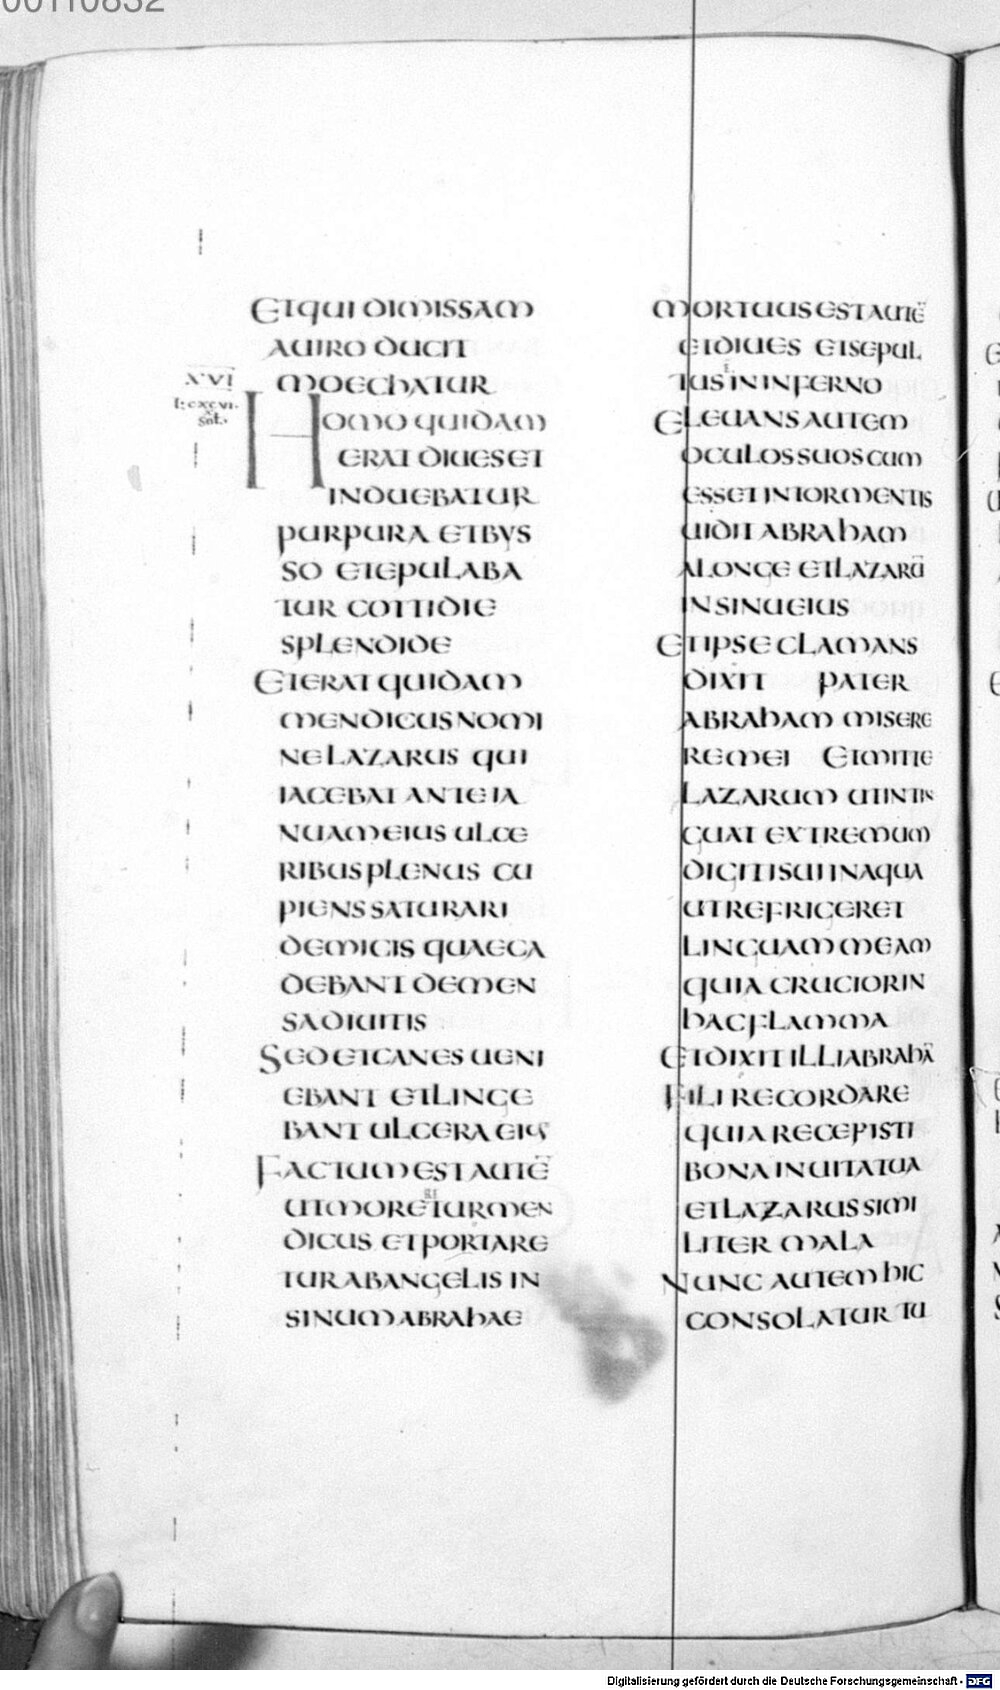 00110832
ET QUI DIMISSAM
A UIRO DUCIT
XVI MOECHATUR
HOMO QUIDAM
ERAT DIUES ET
INDUEBATUR
PURPURA ET BYS
SO ET EPULABA
TUR COTTIDIE
SPLENDIDE
ET ERAT QUIDAM
MENDICUS NOMI
NE LAZARUS QUI
IACEBAT ANTE IA
NUAM EIUS ULCE
RIBUS PLENUS CU
PIENS SATURARI
DE MICIS QUAE CA
DEBANT DE MEN
SA DIUITIS
SED ET CANES UENI
EBANT ET LINGE
BANT ULCERA EIUS
FACTUM EST AUTĒ
UT MORERETUR MEN
DICUS ET PORTARE
TUR AB ANGELIS IN
SINUM ABRAHAE
MORTUUS EST AUTĒ
ET DIUES ET SEPUL
TUS IN INFERNO
ELEUANS AUTEM
OCULOS SUOS CUM
ESSET IN TORMENTIS
UIDIT ABRAHAM
A LONGE ET LAZARŪ
IN SINU EIUS
ET IPSE CLAMANS
DIXIT PATER
ABRAHAM MISERE
RE MEI ET MITTE
LAZARUM UT INTIN
GUAT EXTREMUM
DIGITI SUI IN AQUA
UT REFRIGERET
LINGUAM MEAM
QUIA CRUCIOR IN
HAC FLAMMA
ET DIXIT ILLI ABRAHĀ
FILI RECORDARE
QUIA RECEPISTI
BONA IN UITA TUA
ET LAZARUS SIMI
LITER MALA
NUNC AUTEM HIC
CONSOLATUR TU
Digitalisierung gefördert durch die Deutsche Forschungsgemeinschaft - DFG